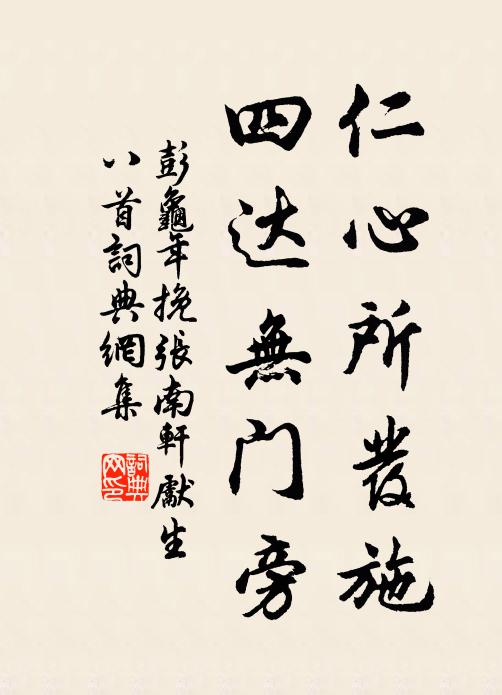 仁心所發施
四达無門旁
彭龜年挽張南軒獻生
八首詞典網集
詞典
网印